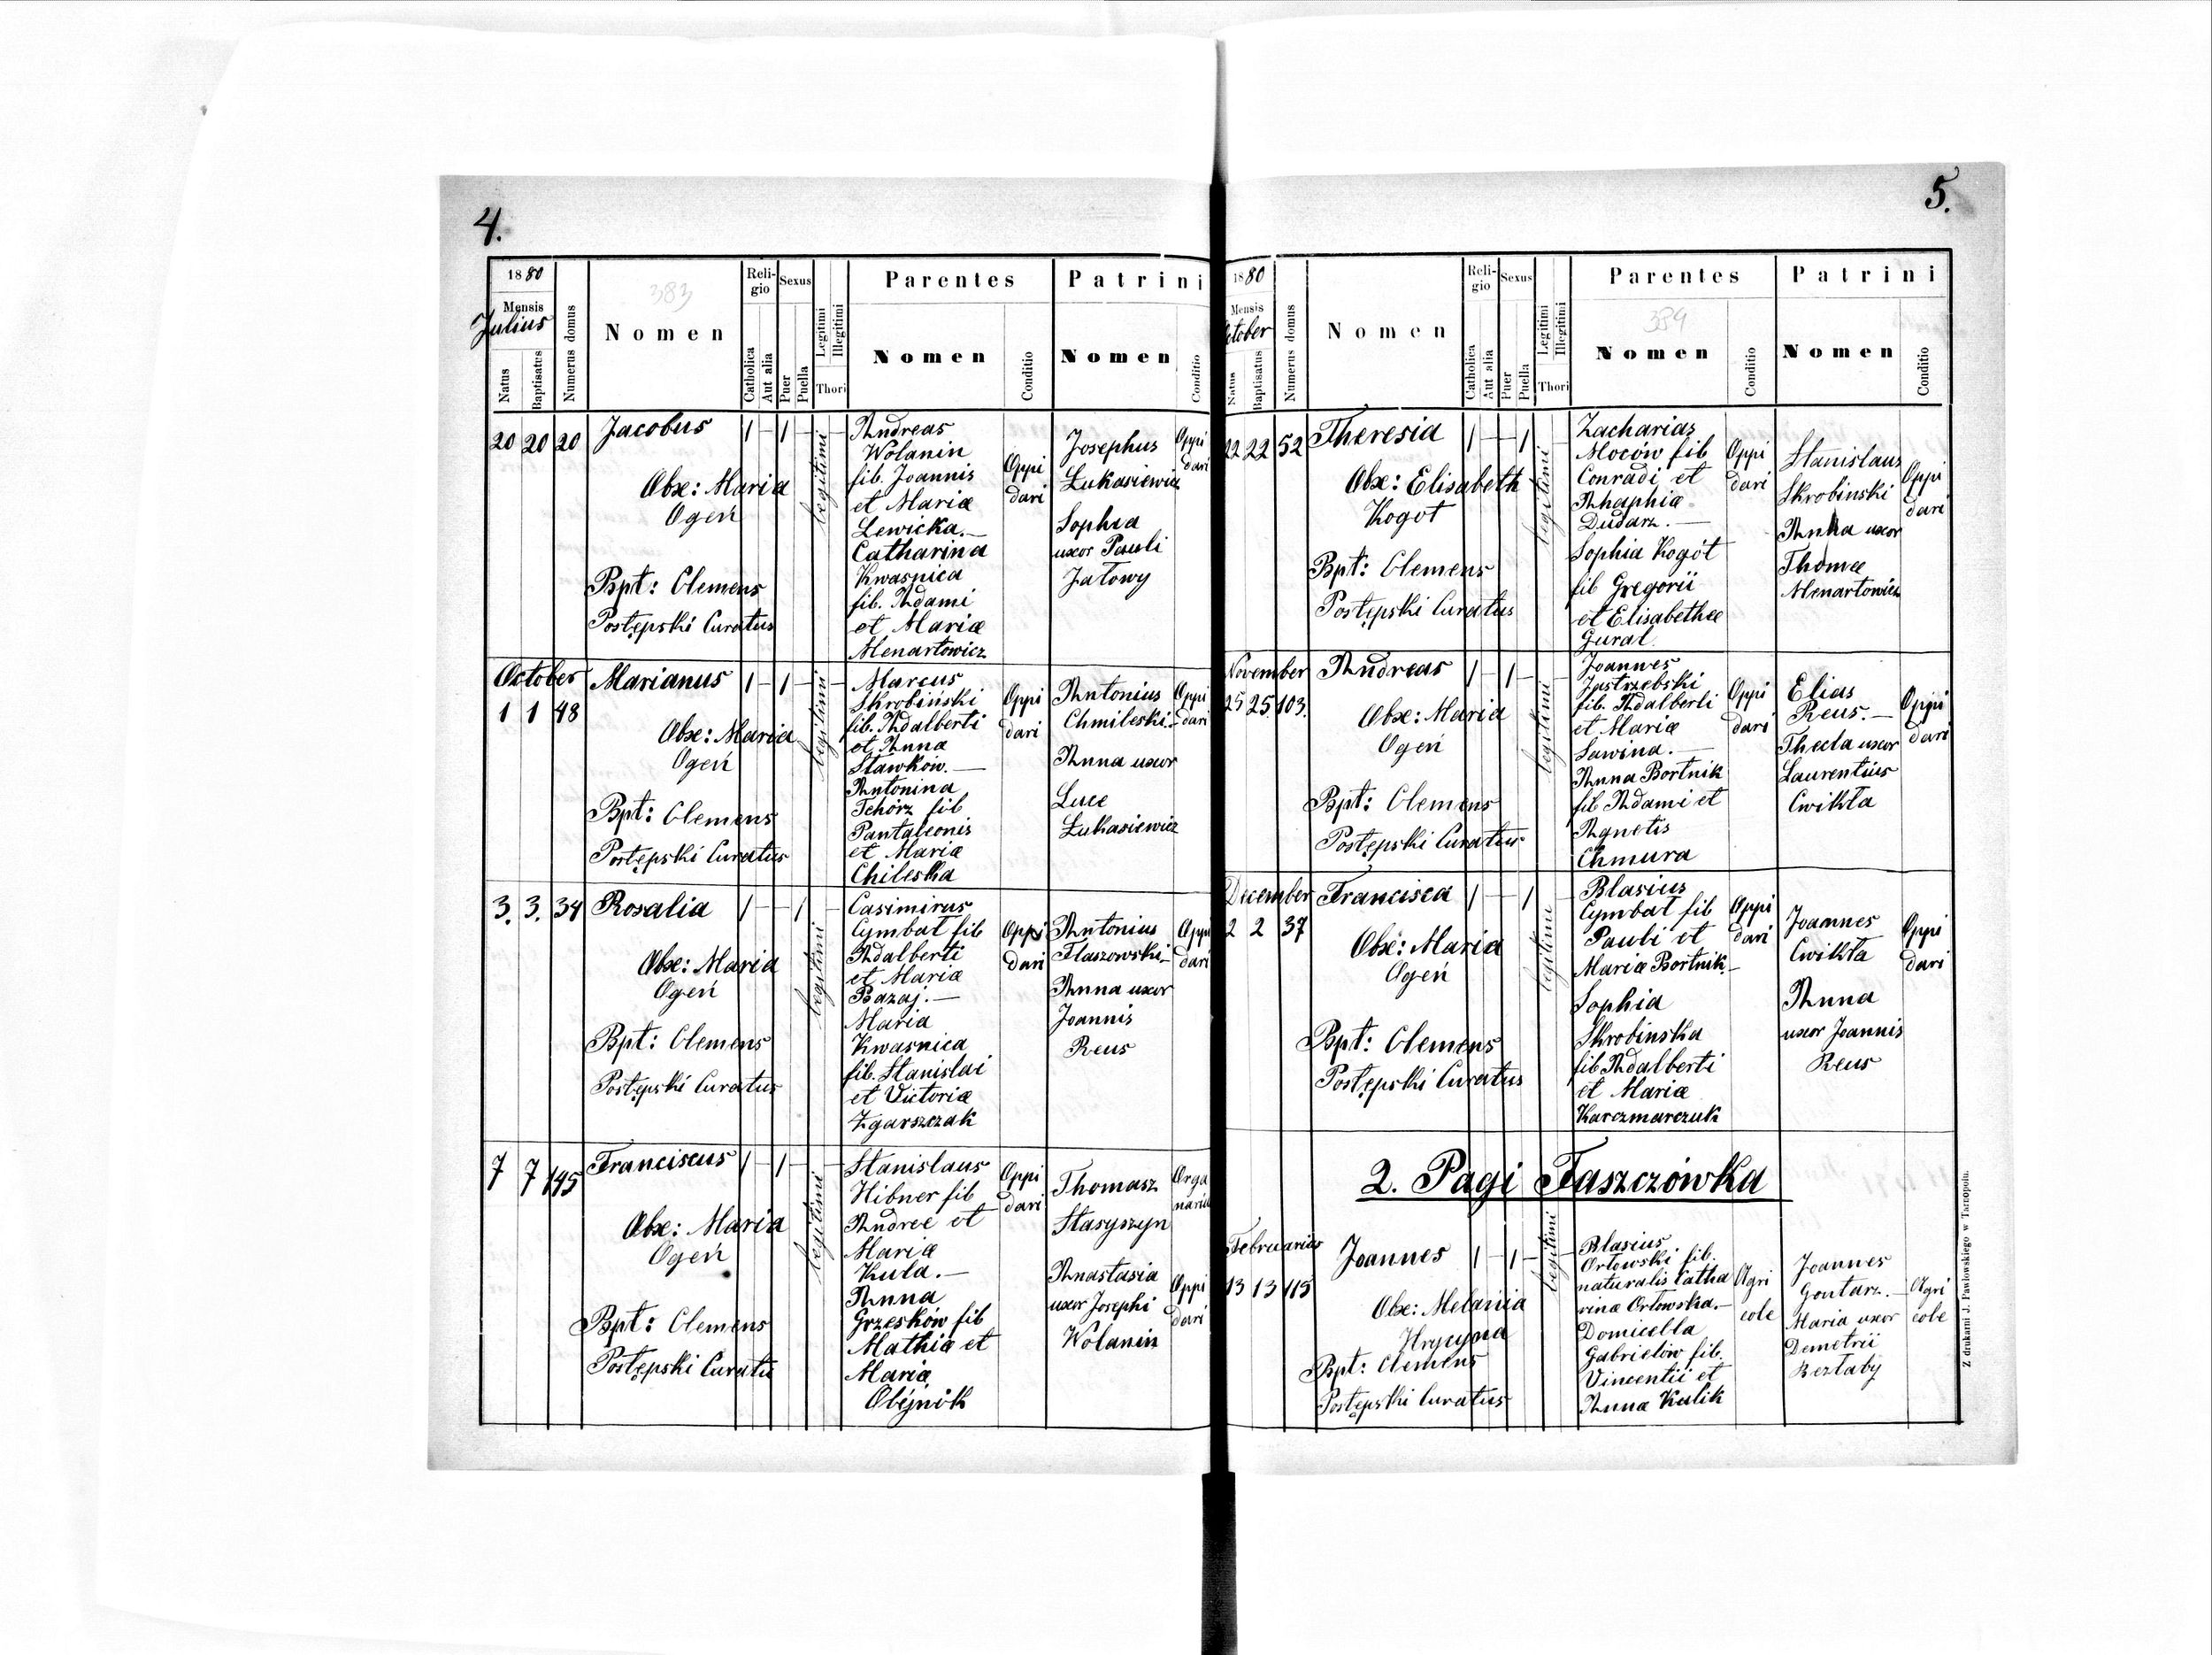 4.
1880
Mensis
Julius
Natus
Baptisatus
Numerus domus
383
Nomen
Religio
Catholica
Aut alia
Sexus
Puer
Puella
Legitimi
Illegitimi
Thori
Parentes
Nomen
Conditio
Patrini
Nomen
Conditio
20 20 20
Jacobus
1 - 1 -
legitimi
Obse: Maria
Ogeń
Bpt: Clemens
Postępski Curatus
Andreas
Wolanin
fil. Joannis
et Mariæ
Lewicka.—
Catharina
Kwasnica
fil. Adami
et Mariæ
Menartowicz
Oppi
dari
Josephus
Łukasiewicz
Sophia
uxor Pauli
Jałowy
Oppi
dari
October
1 1 48
Marianus
1 - 1 -
legitimi
Obse: Maria
Ogeń
Bpt: Clemens
Postępski Curatus
Marcus
Skrobiński
fil. Adalberti
et Anna
Stawków.—
Antonina
Tchórz fil
Pantaleonis
et Mariæ
Chileska
Oppi
dari
Antonius
Chmileski.-
Anna uxor
Luce
Łukasiewicz
Oppi
dari
3. 3. 34
Rosalia
1 - 1 -
legitimi
Obse: Maria
Ogeń
Bpt: Clemens
Postępski Curatus
Casimirus
Cymbał fil
Adalberti
et Mariæ
Bazaj.—
Maria
Kwasnica
fil. Stanislai
et Victoriæ
Zgarszczak
Oppi
dari
Antonius
Flaszowski-
Anna uxor
Joannis
Reus
Oppi
dari
7 7 145
Franciscus
1 - 1 -
legitimi
Obse: Maria
Ogeń
Bpt: Clemens
Postępski Curatu
Stanislaus
Hibner fil
Andreæ et
Mariæ
Kula.—
Anna
Grzesków fil
Mathiæ et
Mariæ
Olejnik
Oppi
dari
Thomasz
Stasyszyn
Anastasia
uxor Josephi
Wolanin
Orga
naria
Oppi
dari
5.
1880
Mensis
October
Natus
Baptisatus
Numerus domus
Nomen
Religio
Catholica
Aut alia
Sexus
Puer
Puella
Legitimi
Illegitimi
Thori
Parentes
384
Nomen
Conditio
Patrini
Nomen
Conditio
22 22 52
Theresia
1 - 1 -
legitimi
Obse: Elisabeth
Kogot
Bpt: Clemens
Postępski Curatus
Zacharias
Moców fil
Conradi et
Ahaphiæ
Dudarz.—
Sophia Kogót
fil Gregorii
et Elisabethæ
Gural
Oppi
dari
Stanislaus
Skrobinski
Anna uxor
Thomæ
Menartowicz
Oppi
dari
November
25 25 103.
Andreas
1 - 1 -
legitimi
Obse: Maria
Ogeń
Bpt: Clemens
Postępski Curatus
Joannes
Jastrzebski
fil. Adalberti
et Mariæ
Sawina.—
Anna Bortnik
fil Adami et
Agnetis
Chmura
Oppi
dari
Elias
Reus.—
Thecla uxor
Laurentius
Cwikła
Oppi
dari
December
2 2 37
Francisca
1 - 1
legitimi
Obse: Maria
Ogeń
Bpt: Clemens
Postępski Curatus
Blasius
Cymbał fil
Pauli et
Mariæ Bortnik.-
Sophia
Skrobinska
fil Adalberti
et Mariæ
Karczmarczuk
Oppi
dari
Joannes
Cwikła
Anna
uxor Joannis
Reus
Oppi
dari
2. Pagi Faszczówka
Februarius
13 13 115
Joannes
1 - 1 -
legitimi
Obse: Melania
Hrycyna
Bpt: Clemens
Postępski Curatus
Blasius
Orłowski fil.
naturalis Catha
rinæ Orłowska.—
Domicella
Gabrielów fil.
Vincentii et
Anna Kulik
Agri
cole
Joannes
Gontarz.—
Maria uxor
Demetrii
Beztaby
Agri
cole
Z drukarni J. Pawłowskiego w Tarnopolu.